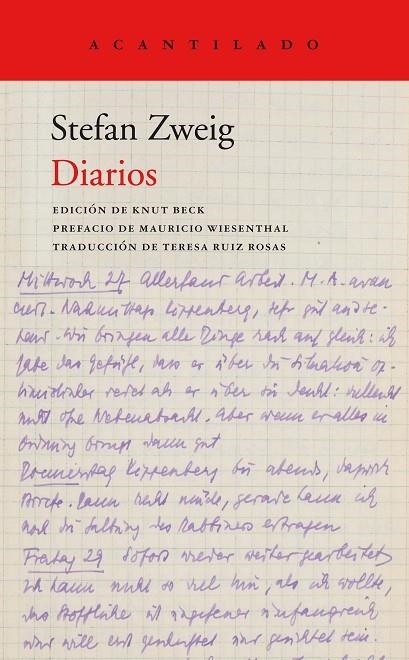 ACANTILADO
Stefan Zweig
Diarios
EDICIÓN DE KNUT BECK
PREFACIO DE MAURICIO WIESENTHAL
TRADUCCIÓN DE TERESA RUIZ ROSAS
Mittwoch 27 Allerhand Arbeit. M. A. avan
ciert. Nachmittags Kippenberg, sehr gut
Wir bringen alle Dinge rasch auf gleich: ich
habe das Gefühl, dass er über die Situation op-
timistischer redet als er über sie denkt: vielleicht
nicht ohne Nebenabsicht. Aber wenn er alles in
Ordnung bringt dann gut
Donnerstag Kippenberg bis abends,
Briefe. Dann recht müde, gerade kann ich
noch die des Rabbiners ertragen
Freitag 29 Sofort wieder weiter gearbeitet,
Ich kann nicht so viel tun, als ich wollte,
das Stoffliche ist ungeheuer umfangreich
und will erst und gesichtet sein.